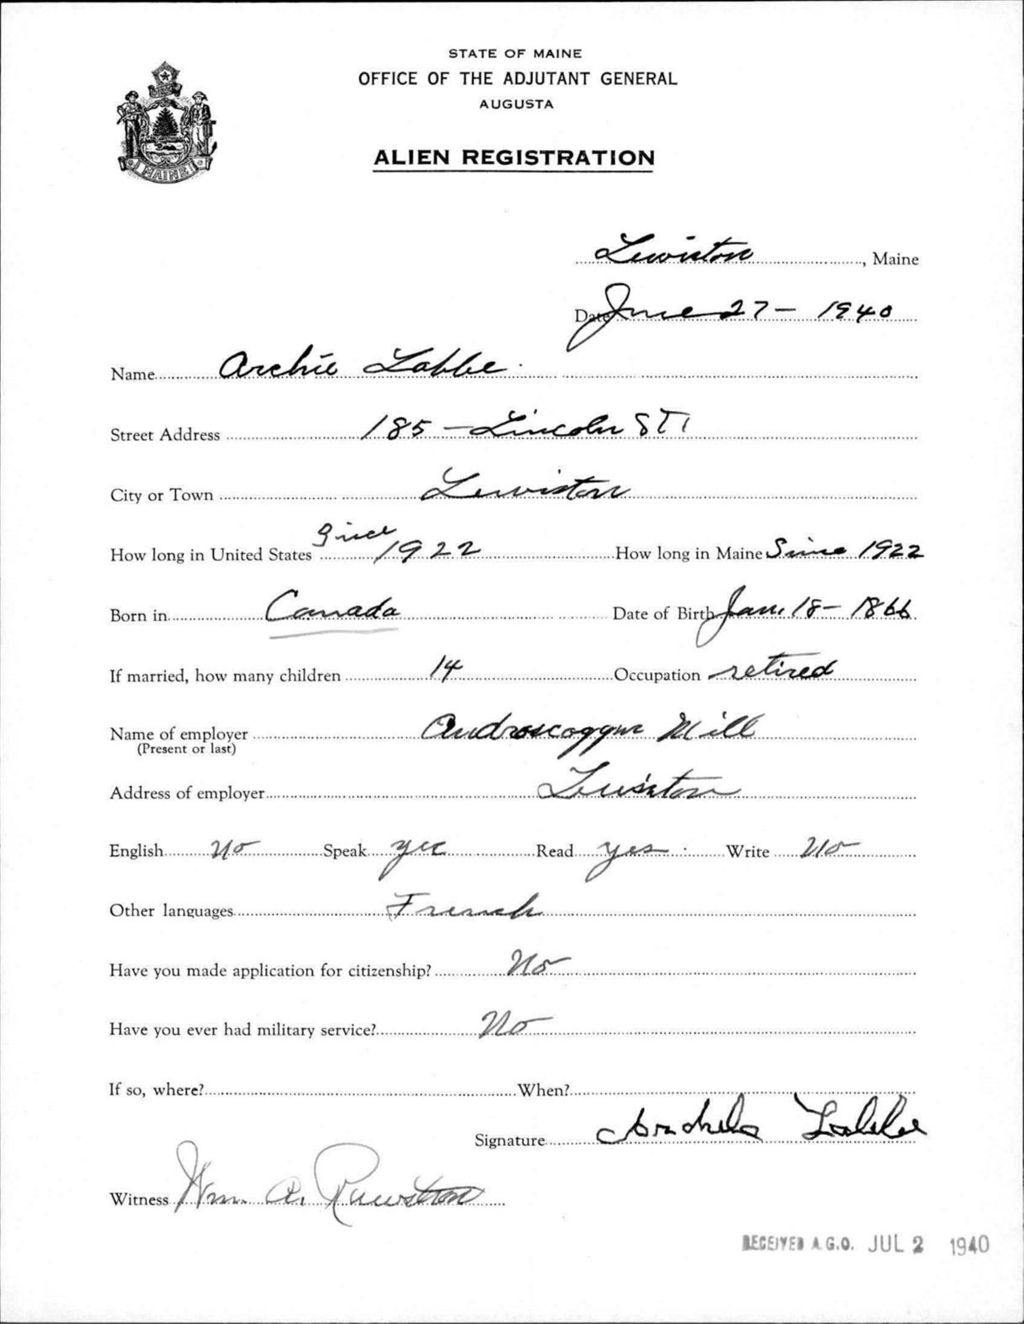 STATE OF MAINE
OFFICE OF THE ADJUTANT GENERAL
AUGUSTA
ALIEN REGISTRATION
MAINE
Lewiston, Maine
Date June 27 - 1940
Name Archie Labbe
Street Address 185 - Lincoln ST.
City or Town Lewiston
How long in United States Since 1922 How long in Maine Since 1922
Born in Canada Date of Birth Jan. 18 - 1866
If married, how many children 14 Occupation retired
Name of employer Androscoggin Mill
(Present or last)
Address of employer Lewiston
English No Speak yes Read yes Write No
Other languages French
Have you made application for citizenship? No
Have you ever had military service? No
If so, where? When?
Signature Labbe
Witness Wm. A.
RECEIVED A.G.O. JUL 2 1940